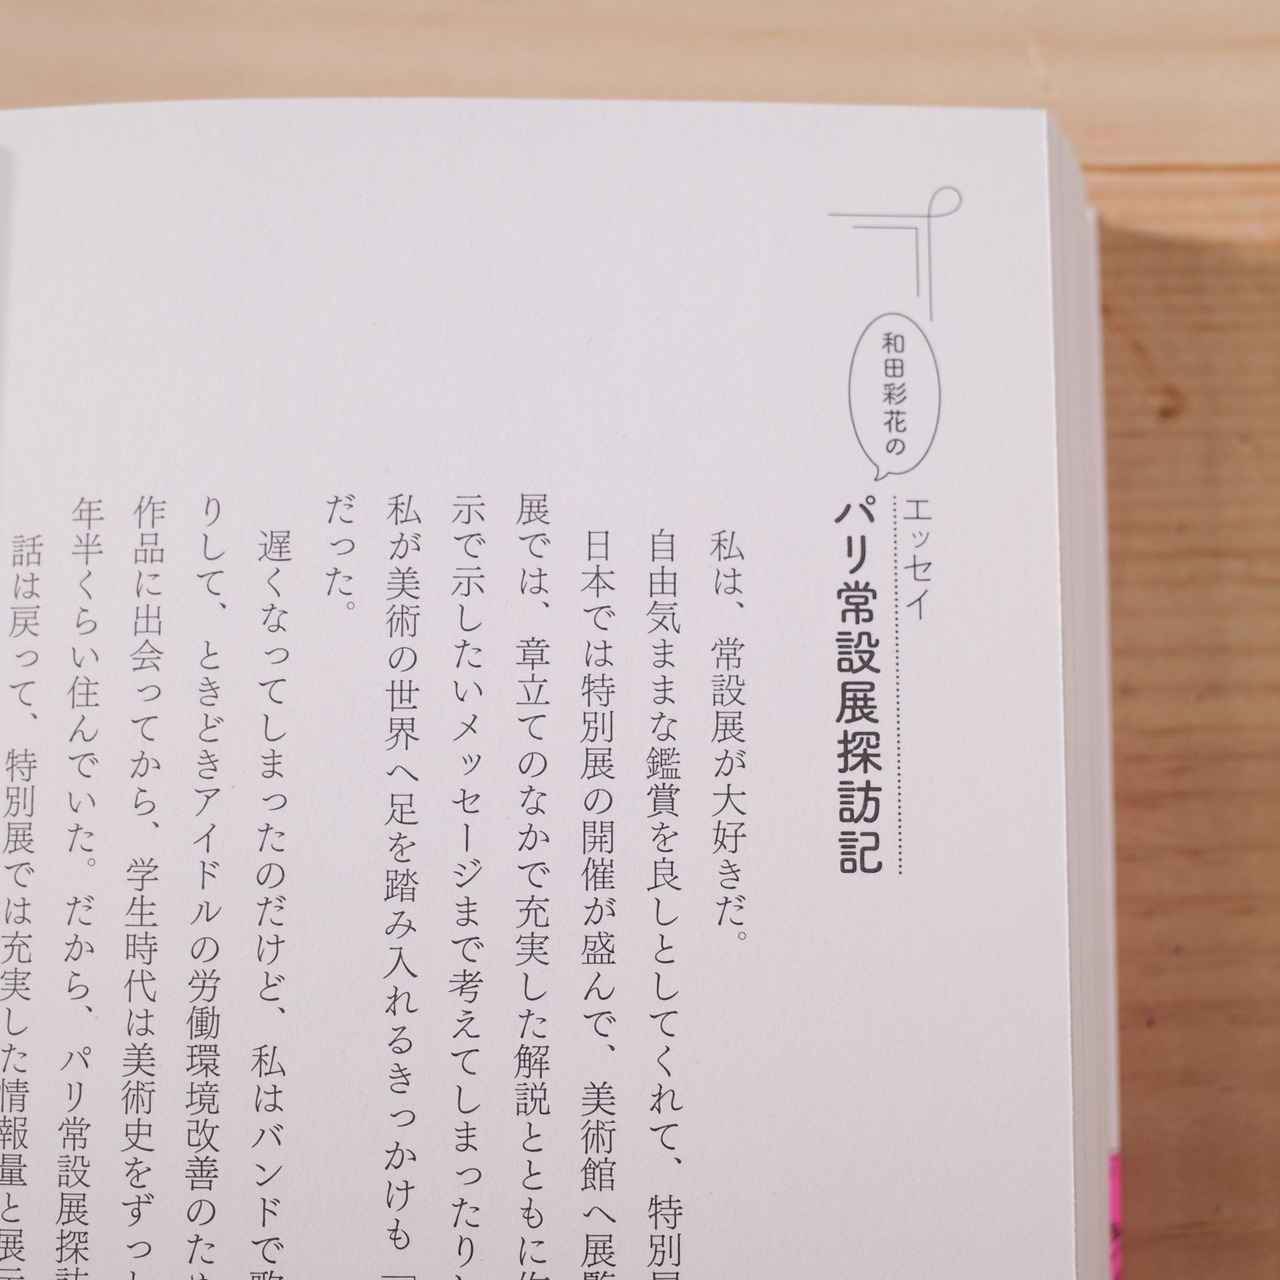 和田彩花の
エッセイ
パリ常設展探訪記
私は、常設展が大好きだ。
自由気ままな鑑賞を良しとしてくれて、特別
日本では特別展の開催が盛んで、美術館へ展覧
展では、章立てのなかで充実した解説とともに作
示で示したいメッセージまで考えてしまったり
私が美術の世界へ足を踏み入れるきっかけも「
だった。
遅くなってしまったのだけど、私はバンドで歌
りして、ときどきアイドルの労働環境改善のため
作品に出会ってから、学生時代は美術史をずっ
年半くらい住んでいた。だから、パリ常設展探訪
話は戻って、特別展では充実した情報量と展示